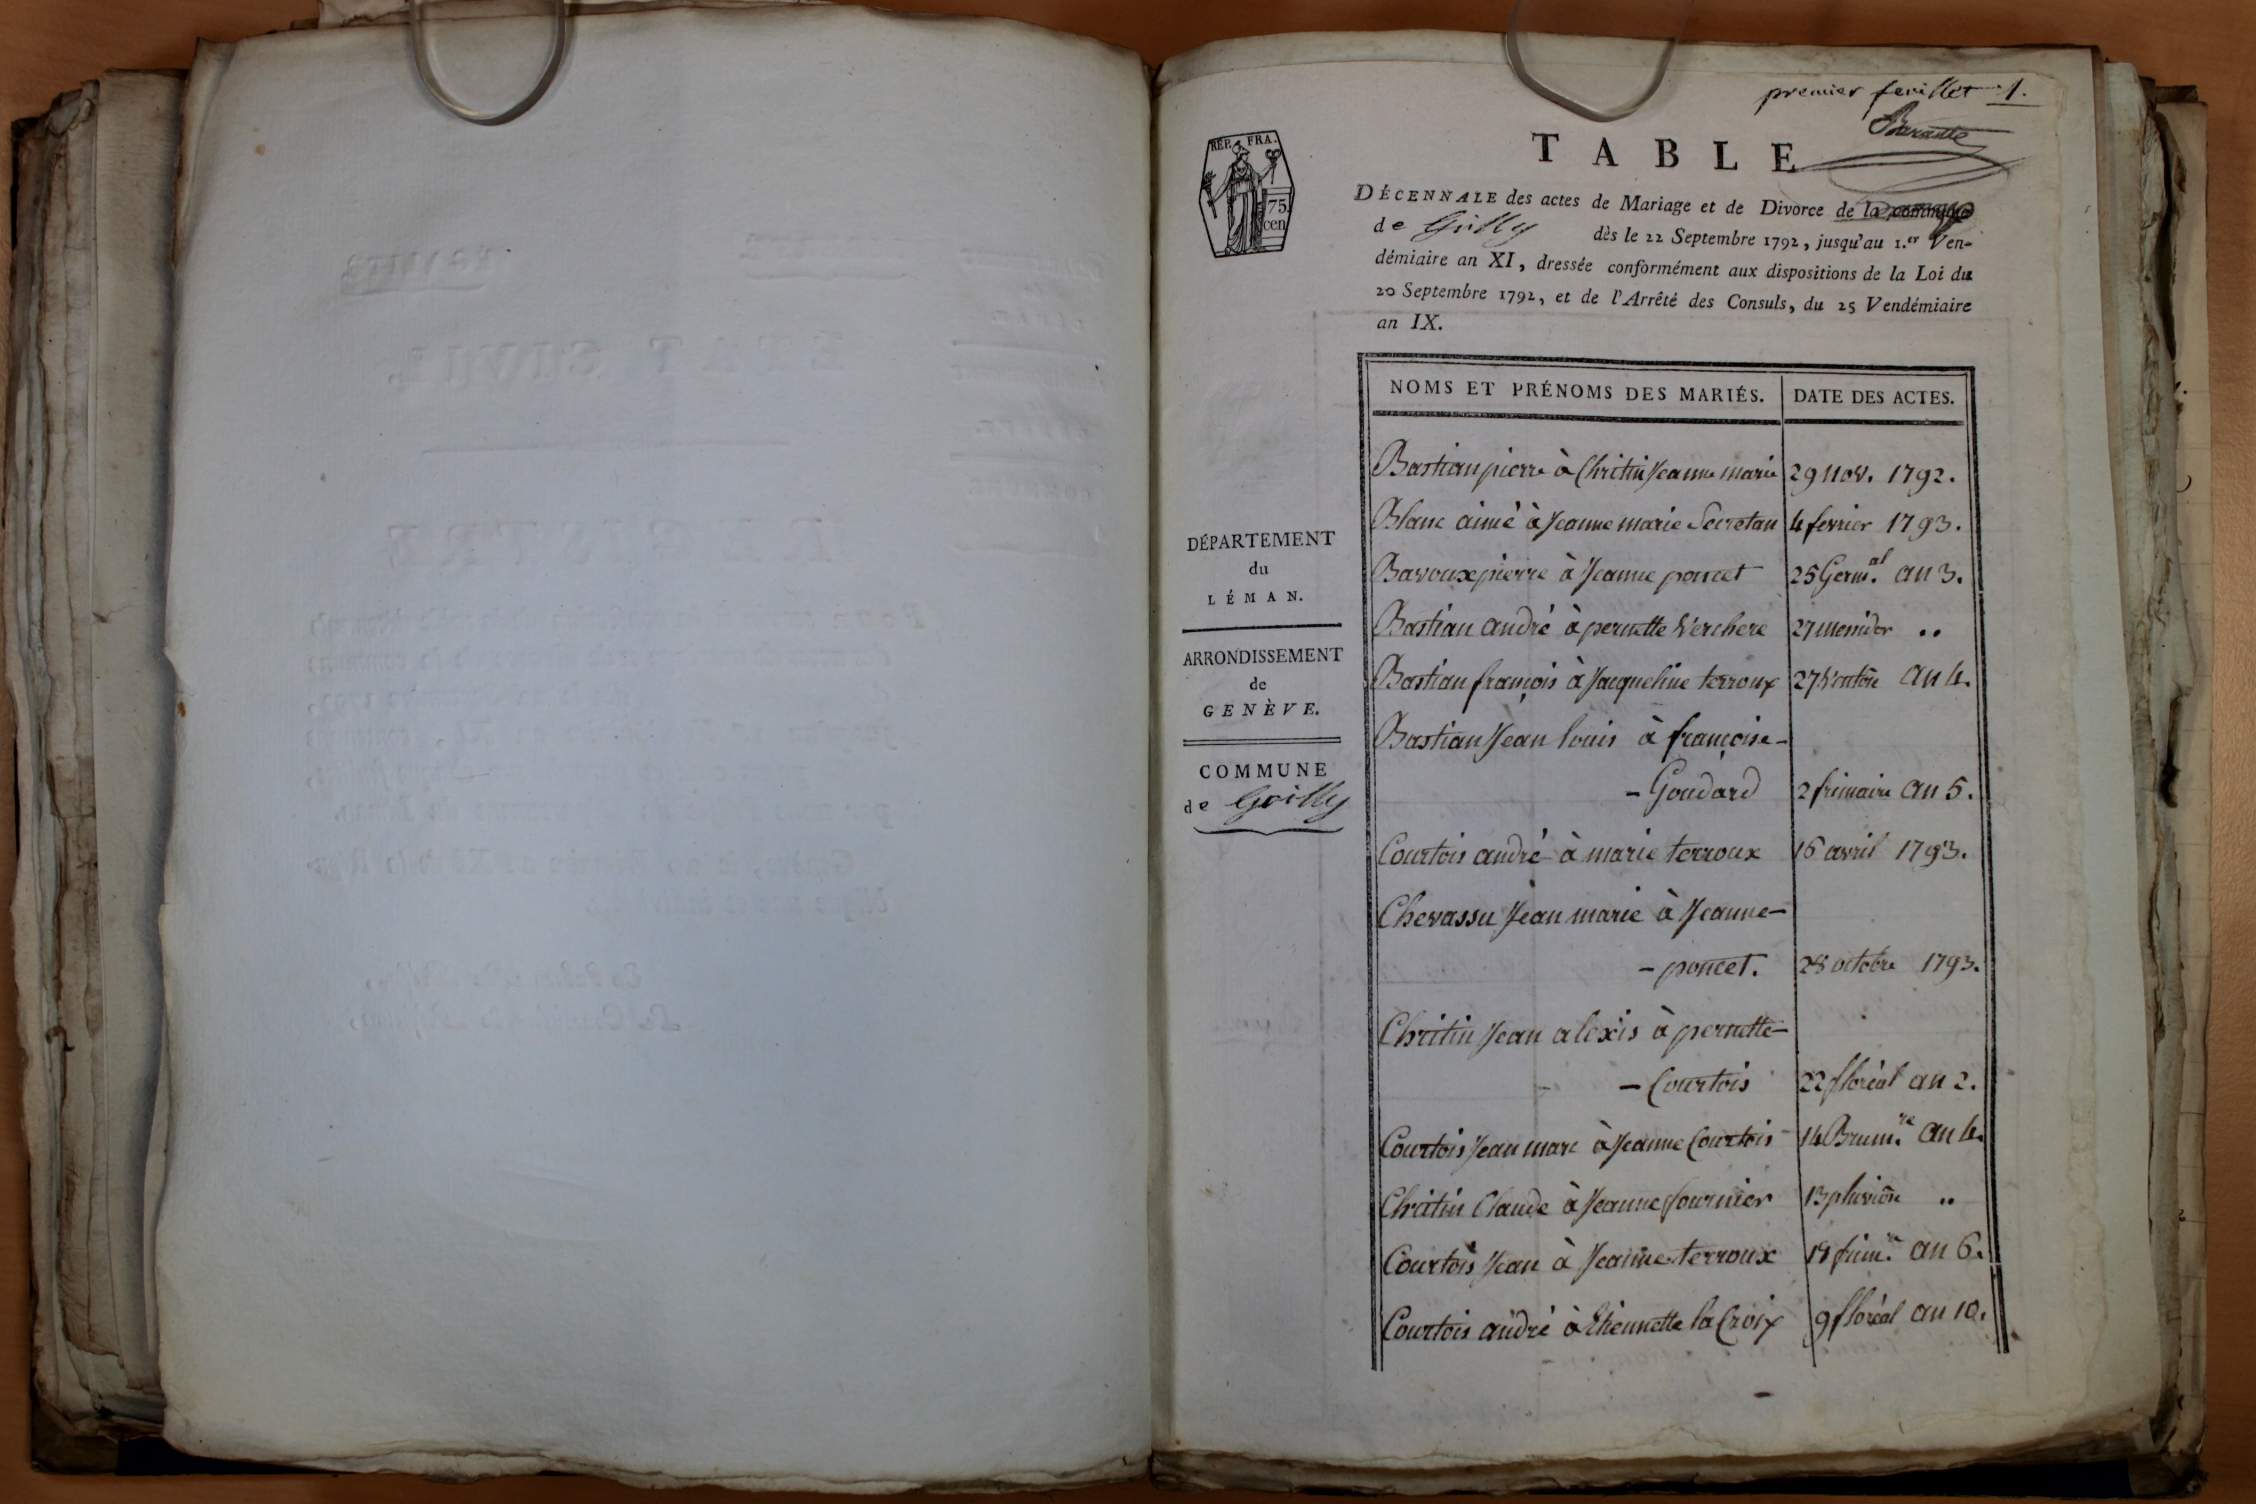 premier feuillet 1.
Barante
RÉP. FRA.
75
cen
TABLE
DÉCENNALE des actes de Mariage et de Divorce de la commune
de Grilly dès le 22 Septembre 1792, jusqu'au 1.er Ven-
démiaire an XI, dressée conformément aux dispositions de la Loi du
20 Septembre 1792, et de l'Arrêté des Consuls, du 25 Vendémiaire
an IX.
DÉPARTEMENT
du
LÉMAN.
ARRONDISSEMENT
de
GENÈVE.
COMMUNE
de Grilly
NOMS ET PRÉNOMS DES MARIÉS. DATE DES ACTES.
Bastian pierre à Chritin Jeanne marie 29 Nov. 1792.
Blanc aimé à Jeanne marie Secretan 4 fevrier 1793.
Bavoux pierre à Jeanne poncet 25 Germ.al an 3.
Bastian andré à pernette Verchere 27 messidor ..
Bastian françois à Jacqueline terroux 27 Ventôse an 4.
Bastian Jean louis à françoise-
- Goudard 2 frimaire an 5.
Courtois andré à marie terroux 16 avril 1793.
Chevassu Jean marie à Jeanne-
- poncet. 28 octobre 1793.
Chritin Jean alexis à pernette-
- Courtois 22 floréal an 2.
Courtois Jean marc à Jeanne Courtois 14 Brum.re an 4.
Chritin Claude à Jeanne fournier 13 pluviôse ..
Courtois Jean à Jeanne terroux 19 frim.re an 6.
Courtois andré à Etiennette la Croix 9 floréal an 10.